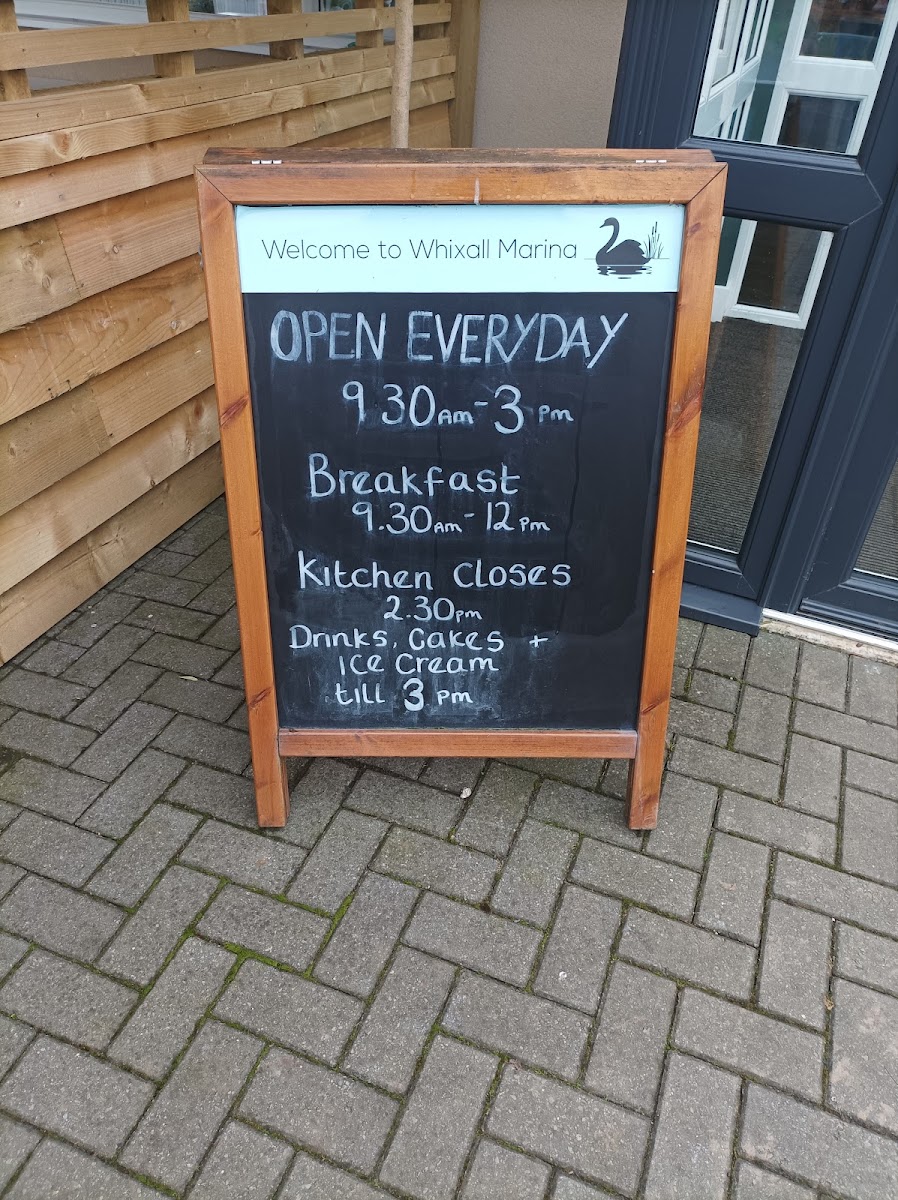 Welcome to Whixall Marina
OPEN EVERYDAY
9.30am - 3pm
Breakfast
9.30am - 12pm
Kitchen Closes
2.30pm
Drinks, Cakes +
Ice Cream
till 3pm